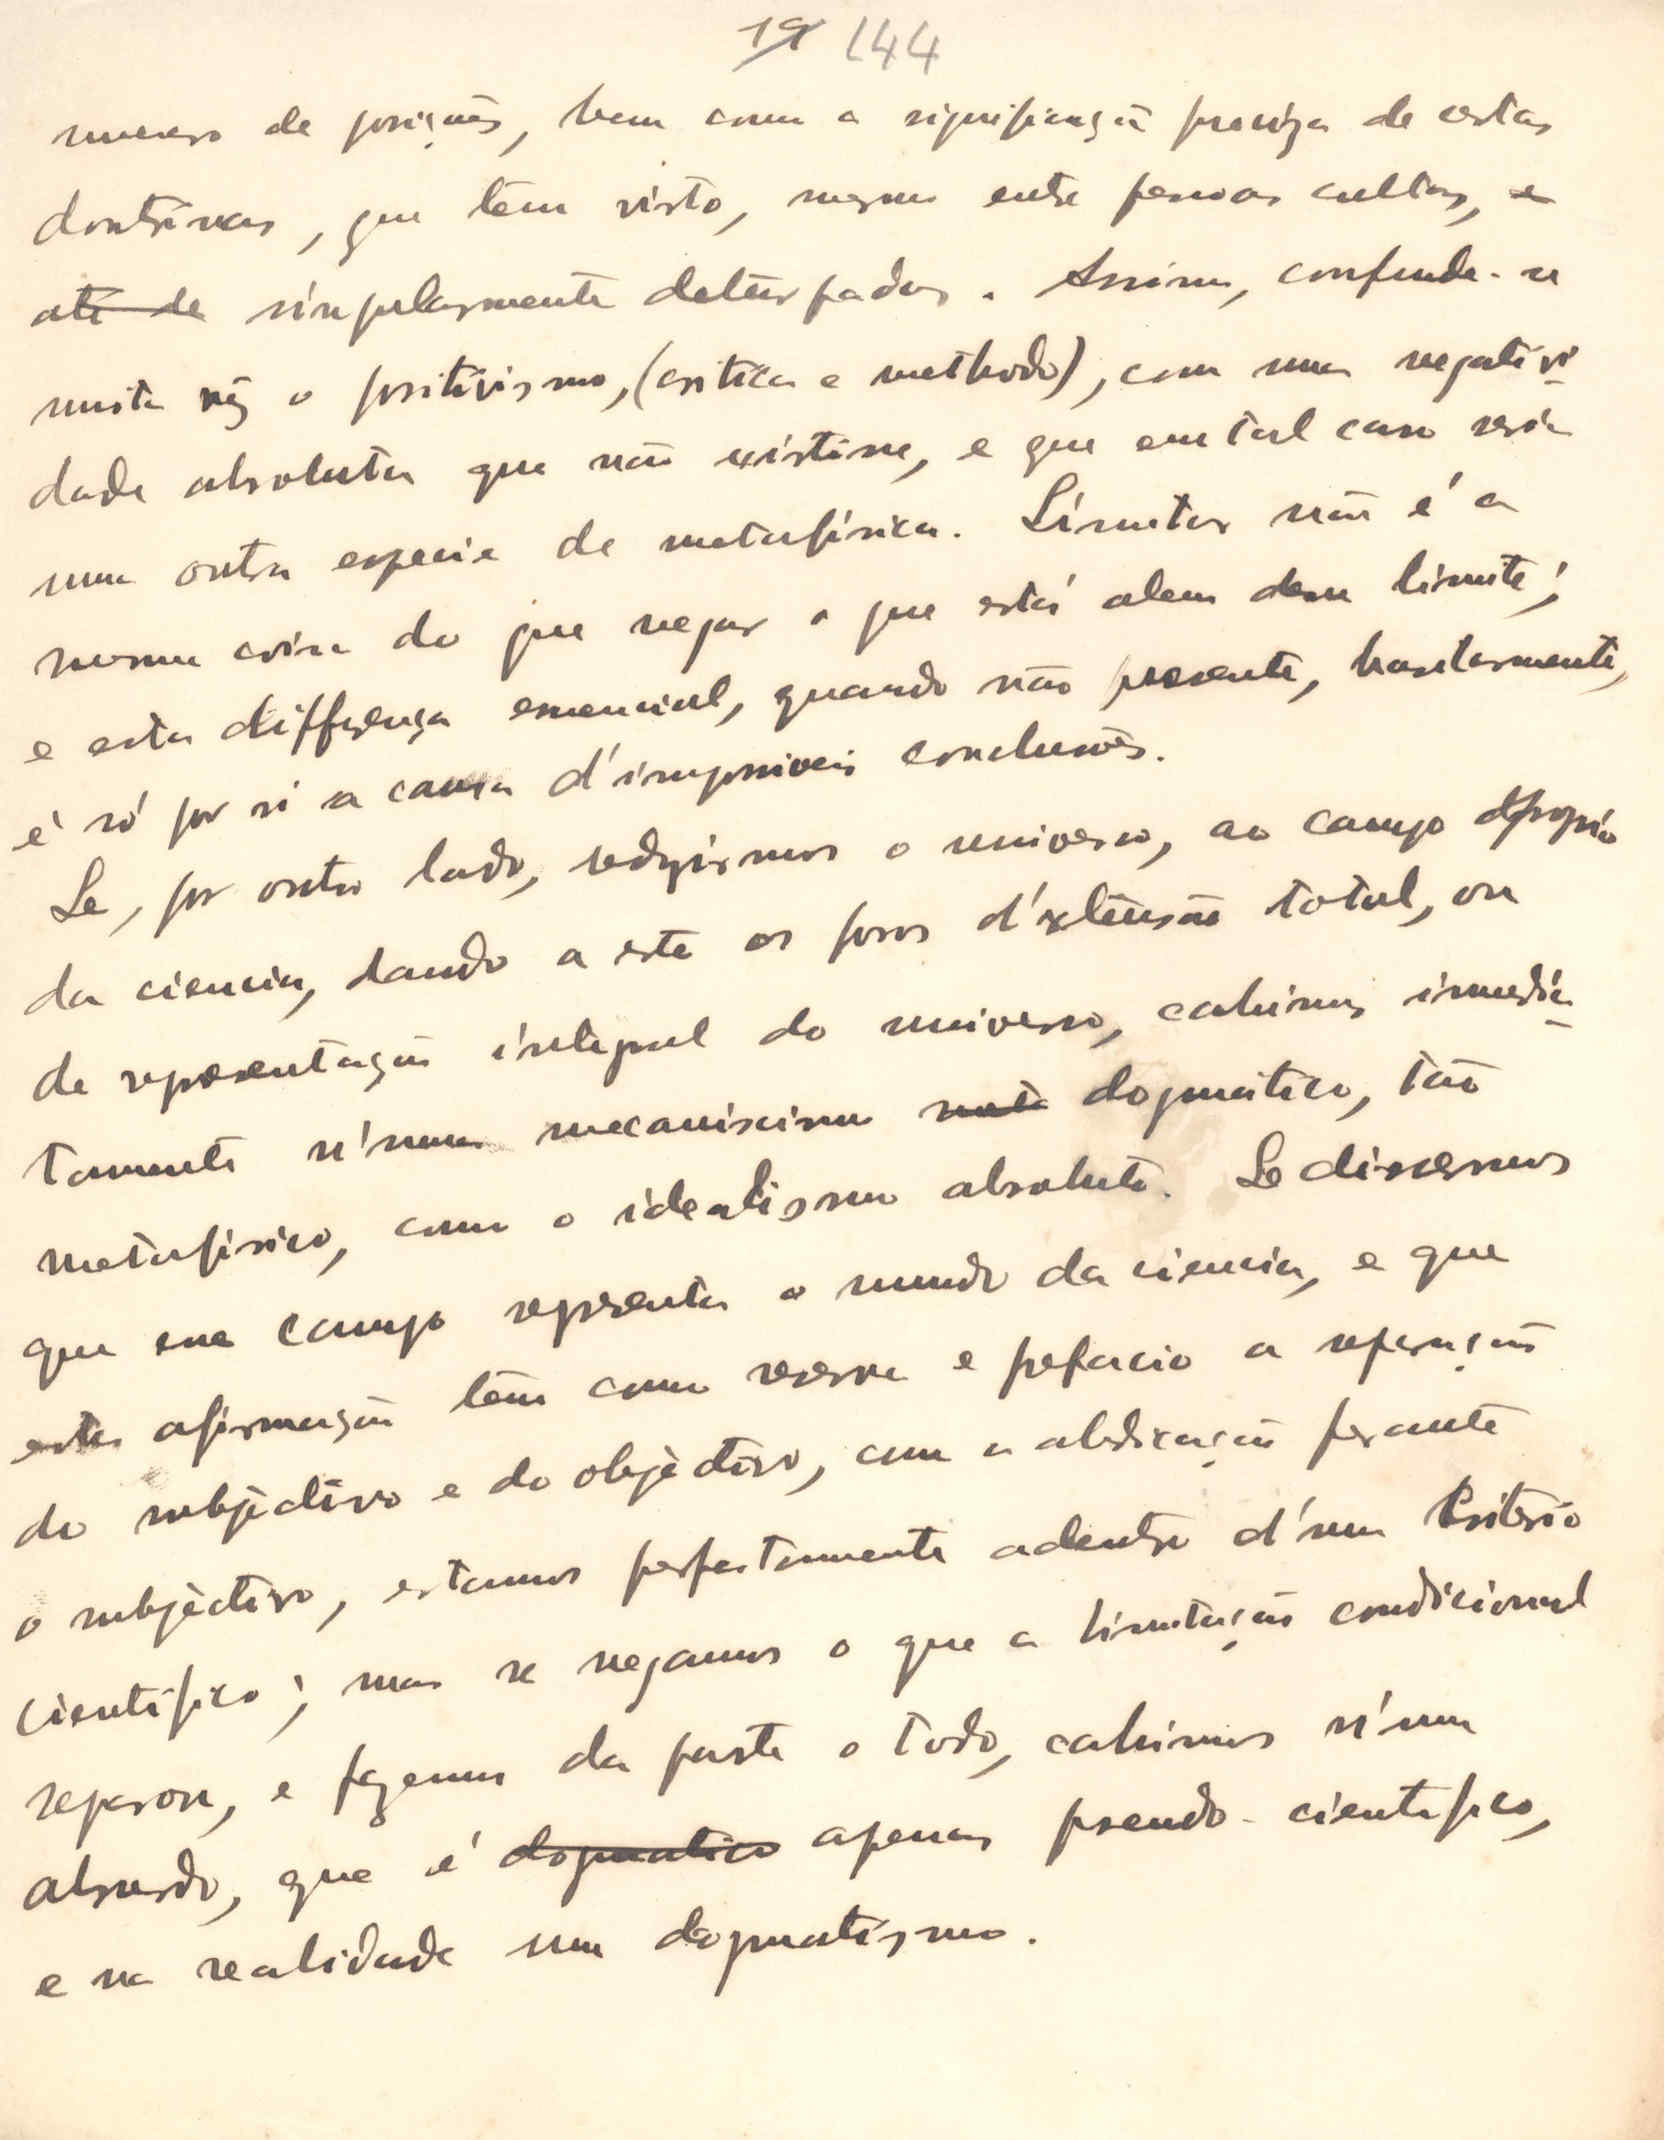 19 144
de posições, bem como a significação preciza de certas
doutrinas, que tem visto, mesmo entre pessoas cultas, e
até de singularmente deturpadas. Assim, confunde-se
muita vez o positivismo, (critica e methodo), com uma negativi-
dade absoluta que não existisse, e que em tal caso seria
uma outra especie de metafisica. Limitar não é a
mesma coisa do que negar o que está alem desse limite;
e esta differença essencial, quando não presente,
é só por si a causa d'impossiveis conclusões.
Se, por outro lado, reduzirmos o universo, ao campo proprio
da ciencia, dando a este os foros d'extensão total, ou
de representação integral do universo, cahimos imedia-
tamente n'um mecanicismo dogmático, tão
metafisico, como o idealismo absoluto. Se dissermos
que esse campo representa o mundo da ciencia, e que
esta afirmação tem como reserva e prefacio a separação
do subjèctivo e do objèctivo, com a abdicação perante
o subjèctivo, estamos perfeitamente adentro d'um criterio
cientifico; mas se negamos o que a limitação condicional
separou, e fazemos da parte o todo, cahimos n'um
absurdo, que é dogmatico apenas pseudo-cientifico,
e na realidade um dogmatismo.